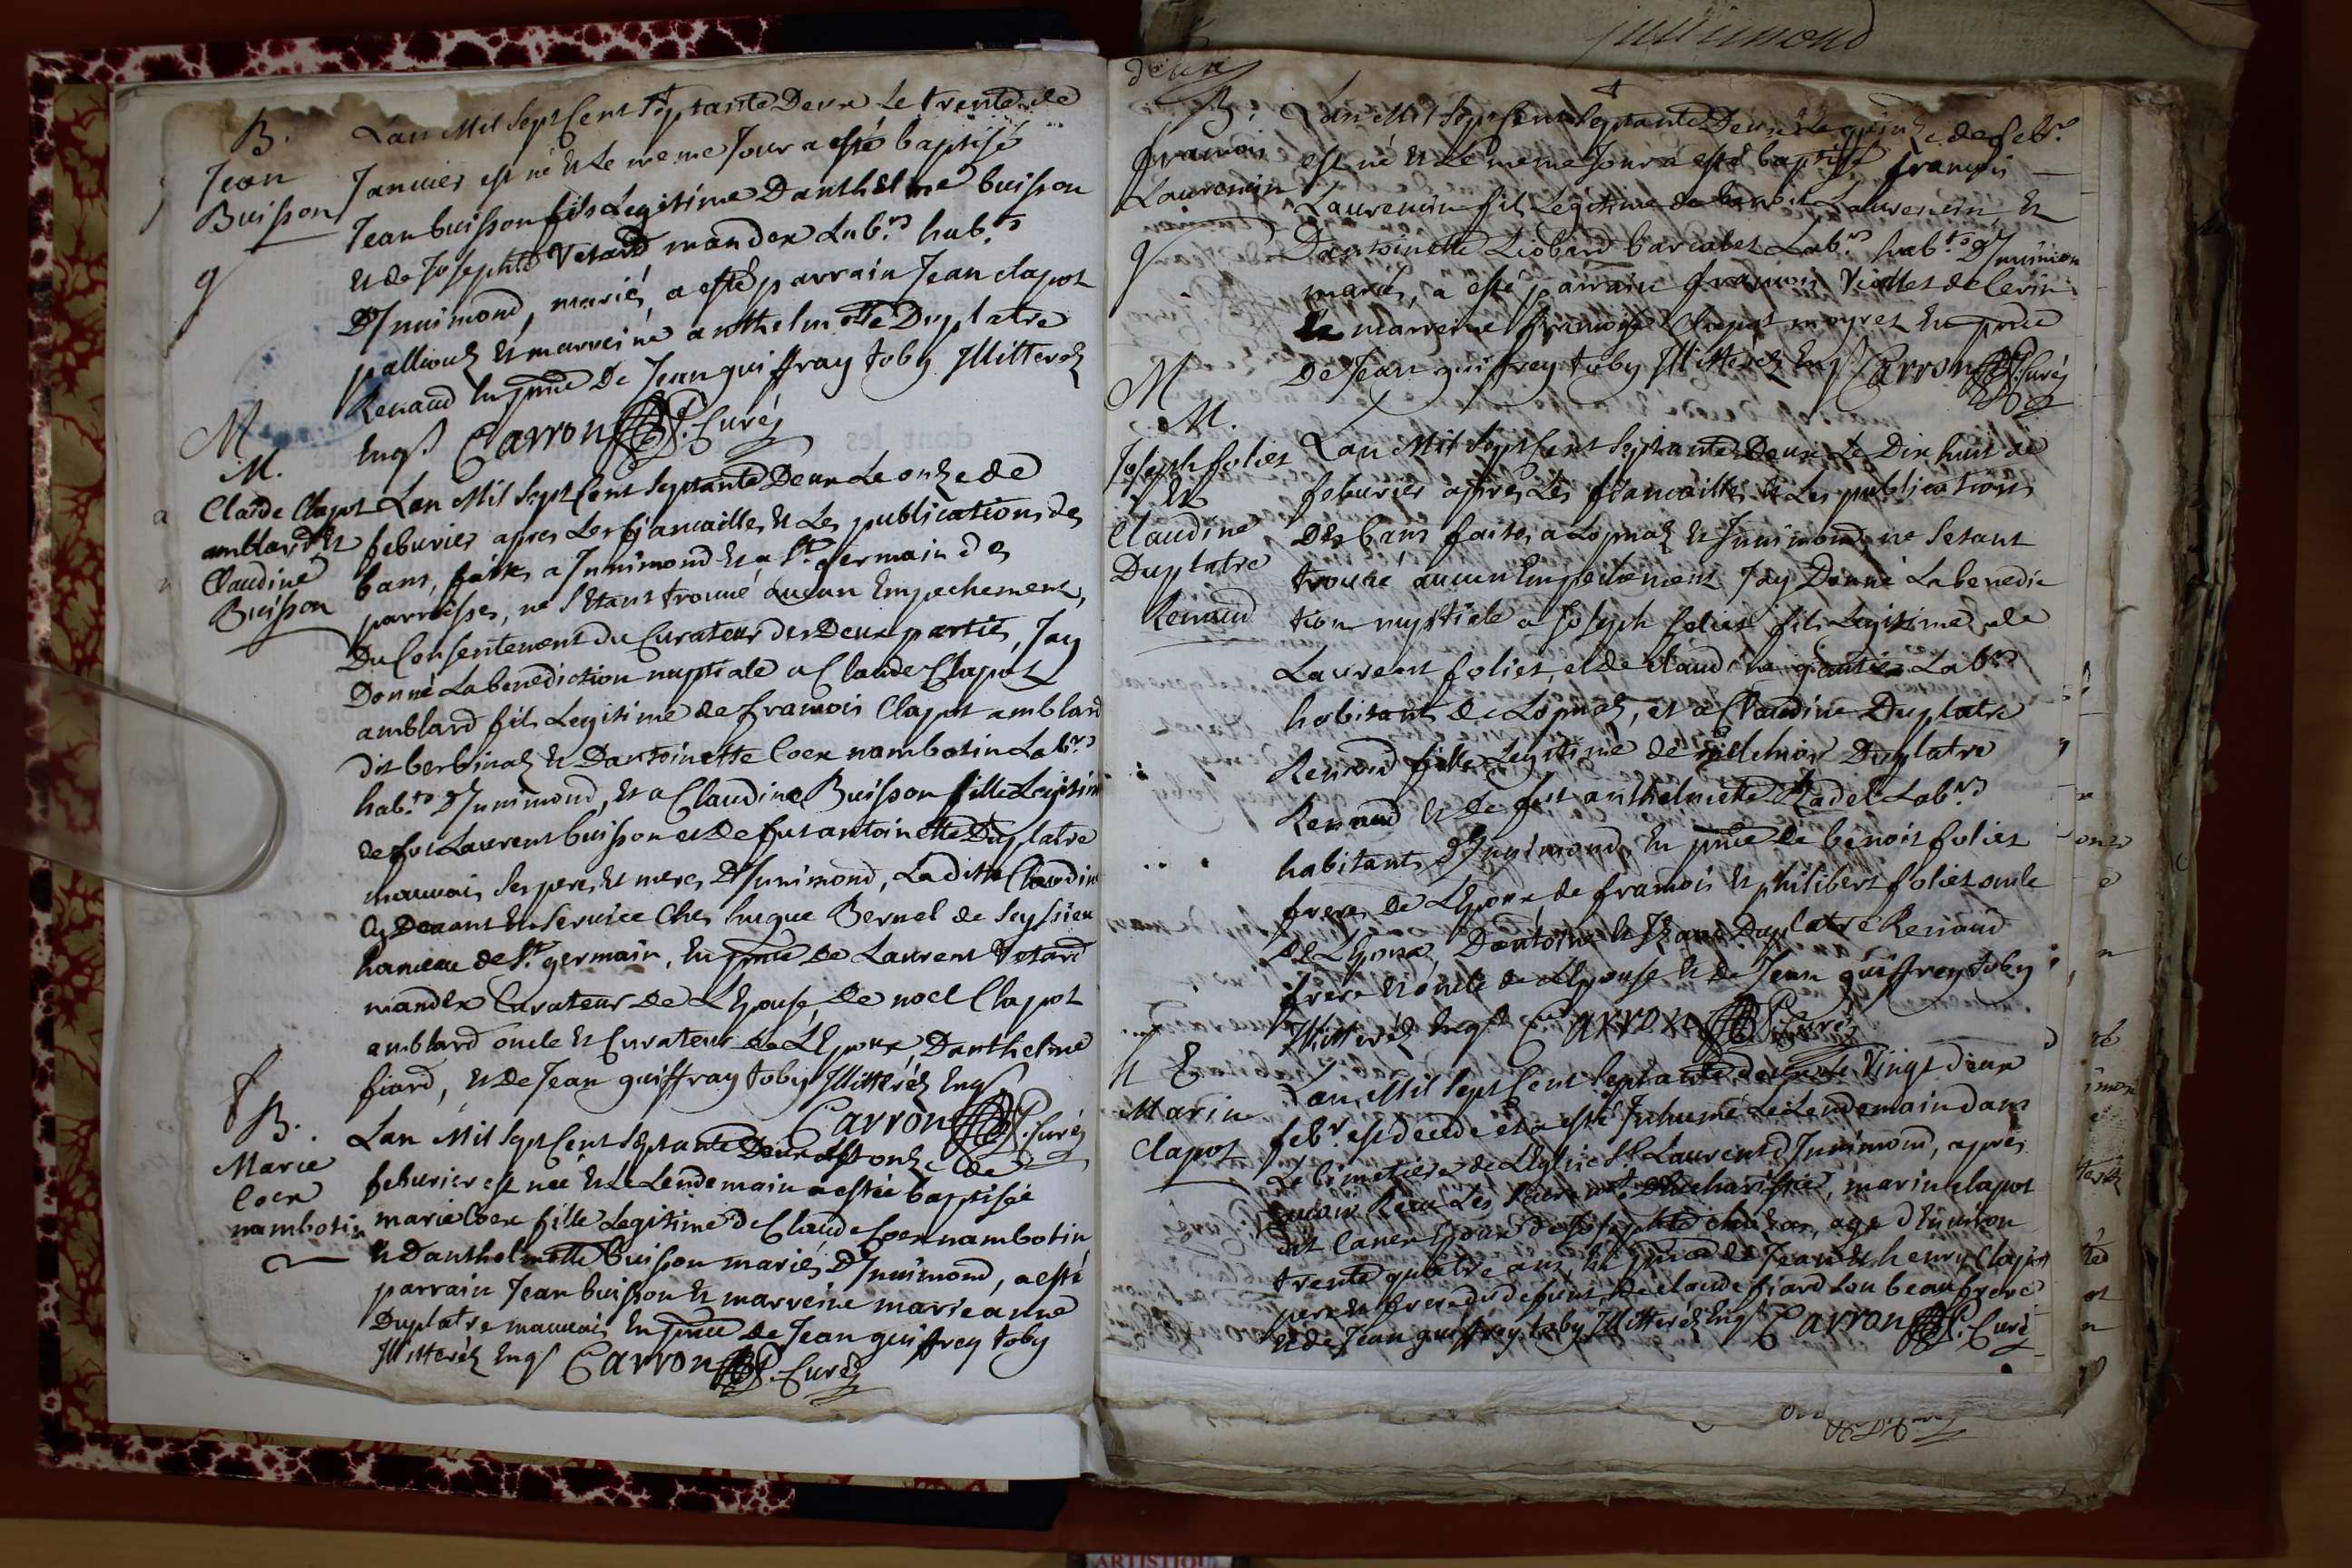 B.
Jean
Buisson
Lan Mil Sept Cent Septante Deux Le trente de
Janvier est né et Le meme Jour a esté baptisé
Jean buisson fils Legitime Danthelme buisson
et de Josephte Vetard mandex Lab.rs hab.ts
D'Innimond, mariés, a esté parrain Jean clapot
pallioud et marreine anthelmette Duplatre
Renaud En pnce De Jean guiffray toby Illitterez
Enqs Carron P. Curéz
M
M.
Claude Clapot
amblard et
Claudine
Buisson
Lan Mil Sept Cent Septante Deux Le onze de
feburier apres Les fiancailles et Les publications des
bans, faites a Innimond et a St germain des
parroisses, ne s'Etant trouvé aucun Empechement,
Du Consentement du Curateur des Deux parties, Jay
Donné La benediction nuptiale a Claude Clapot
amblard fils Legitime de francois Clapot amblard
dit berbinaz et Dantoinette Coex nambotin Lab.rs
hab.ts D'Innimond, et a Claudine Buisson fille Legitime
de feu Laurent buisson et de fut antoinette Duplatre
mauvais Ses pere et mere D'Innimond, Laditte Claudine
Cy Devant En Service Ches hugue Bernel de Seyssieu
hameau de St germain, En pnce De Laurent Vetard
mandex Curateur de L'Epouse, De noel Clapot
amblard oncle et Curateur de L'Epoux, Danthelme
fiard, et de Jean guiffray toby Illitteréz Enqs
Carron P. Curéz
B.
Marie
Coex
nambotin
Lan Mil Sept Cent Septante Deux Le onze de
feburier est née et Le Lendemain a estée baptisée
marie Coex fille Legitime de Claude Coex nambotin
et danthelmette buisson mariés D'Innimond, a esté
parrain Jean buisson et marreine marie anne
Duplatre mauvais En pnce de Jean guiffrey toby
Illitteréz Enqs Carron P. Curéz
deux
B.
francois
Laurencin
Lan Mil Sept Cent Septante Deux Le quinze de febr.
est né et Le meme Jour a esté baptisé francois
Laurencin fils Legitime de benoit Laurencin, et
Dantoinette Liobard barcabet Lab.rs hab.ts D'Innimon
mariés, a esté parrain francois Viollet de Cerin
et marreine francoise Clapot moyret En pnce
De Jean guiffrey toby Illitteréz Enqs Carron P. Curéz
M
M.
Joseph foliet
et
Claudine
Duplatre
Renaud
Lan Mil Sept Cent Septante Deux Le Dix huit de
feburier apres Les fiancailles et Les publications
Des bans faites a Lopnaz et Innimond, ne Setant
trouvé aucun Empechement Jay Donné La benedic
tion nuptiale a Joseph foliet fils Legitime de
Laurent foliet, et de Claudine gautier Lab.rs
habitants de Lopnaz, et a Claudine Duplatre
Renaud fille Legitime de Duplatre
Renaud et De fut anthelmette Lab.rs
habitants D'Innimond, En pnce De benoit foliet
frere De L'Epoux, de francois et philibert foliet oncle
de L'Epoux, Dantoine et Duplatre Renaud
frere et oncle de L'Epouse et de Jean guiffrey toby
Illitteréz Enqs Carron P. Curéz
Marin
Clapot
Lan Mil Sept Cent Septante deux Le Vingt deux
febr. est décédé et a esté Inhumé Le Lendemain dans
Le Cimetiere de L'Eglise St Laurent D'Innimond, apres
avoir Recu Les Sacrem.ts D'Eucharistie, marin clapot
dit Epoux de Josephte age d'Environ
trente quatre ans, En pnce de Jean et henry Clapot
pere et frere du defunt, De claude fiard Son beaufrere
et de Jean guiffrey toby Illitteréz Enqs Carron P. Curé